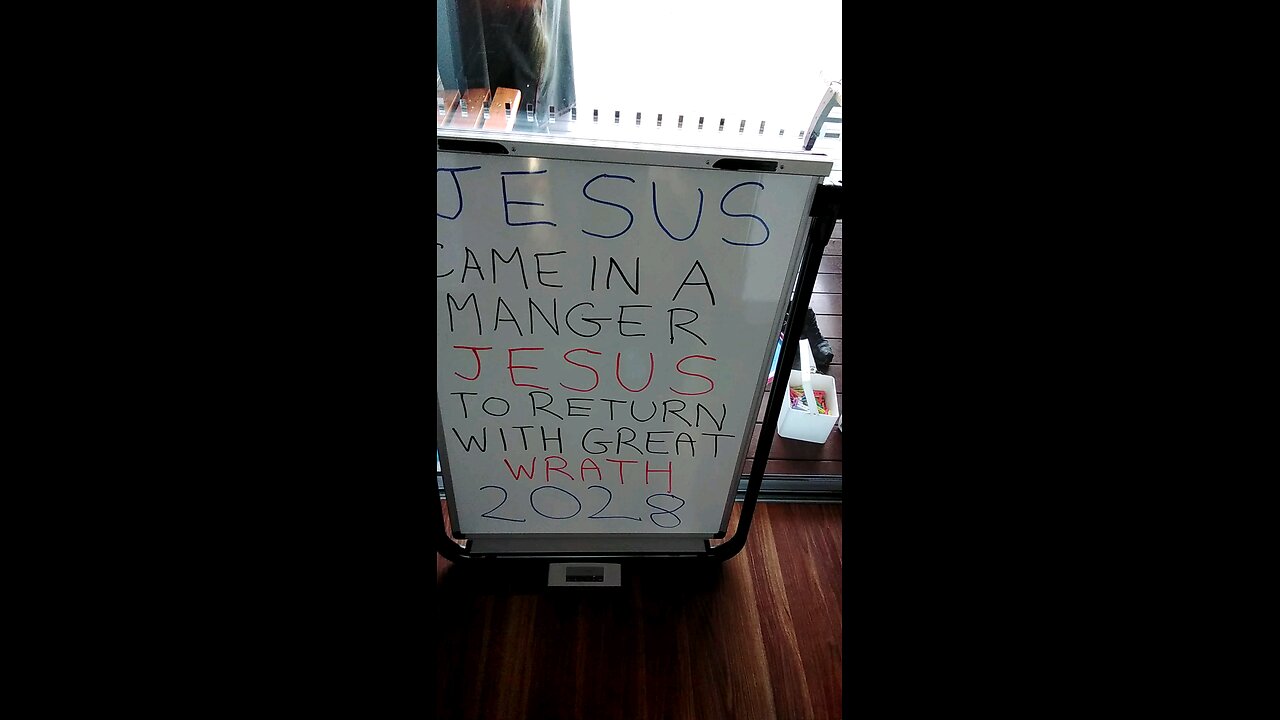 JESUS
CAME IN A
MANGER
JESUS
TO RETURN
WITH GREAT
WRATH
2028